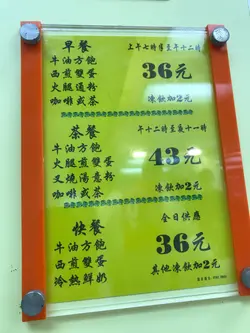 早餐
上午七時屋至午十二時
牛油方飽
西煎雙蛋
火腿通粉
咖啡或茶
36元
凍飲加2元
茶餐
午十二時至晨十一時
牛油方飽
火腿煎雙蛋
叉燒湯意粉
咖啡或茶
43元
凍飲加2元
快餐
全日供應
牛油方飽
西煎雙蛋
冷熱鮮奶
36元
其他凍飲加2元